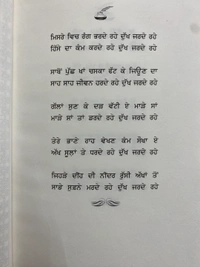 ਮਿਸਰੇ ਵਿਚ ਰੰਗ ਭਰਦੇ ਰਹੇ ਦੁੱਖ ਜਰਦੇ ਰਹੇ
ਹਿੱਸੇ ਦਾ ਕੰਮ ਕਰਦੇ ਰਹੇ ਦੁੱਖ ਜਰਦੇ ਰਹੇ
ਸਾਥੋਂ ਪੁੱਛ ਖਾਂ ਚਸਕਾ ਵੱਟ ਕੇ ਜਿਊਣ ਦਾ
ਸਾਹ ਸਾਹ ਜੀਵਨ ਹਰਦੇ ਰਹੇ ਦੁੱਖ ਜਰਦੇ ਰਹੇ
ਗੱਲਾਂ ਸੁਣ ਕੇ ਦੜ ਵੱਟੀ ਏ ਮਾੜੇ ਸਾਂ
ਮਾੜੇ ਸਾਂ ਤਾਂ ਡਰਦੇ ਰਹੇ ਦੁੱਖ ਜਰਦੇ ਰਹੇ
ਤੇਰੇ ਭਾਣੇ ਰਾਹ ਵੇਖਣ ਕੰਮ ਸੌਖਾ ਏ
ਅੱਖ ਸੂਲਾਂ ਤੇ ਧਰਦੇ ਰਹੇ ਦੁੱਖ ਜਰਦੇ ਰਹੇ
ਜਿਹੜੇ ਦਿਹੁੰ ਦੀ ਨੀਂਦਰ ਰੁੱਸੀ ਅੱਖਾਂ ਤੋਂ
ਸਾਡੇ ਸੁਫ਼ਨੇ ਮਰਦੇ ਰਹੇ ਦੁੱਖ ਜਰਦੇ ਰਹੇ